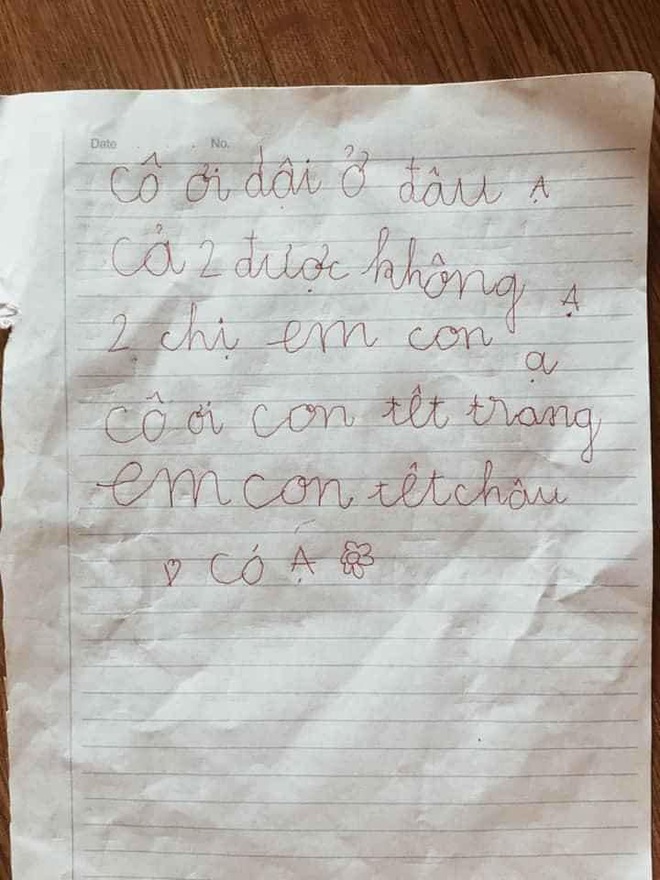 Date No.
cô ơi dậi ở đâu Ạ
cả 2 được không Ạ
2 chị em con ạ
cô ơi con têt trang
em con têt châu
có Ạ